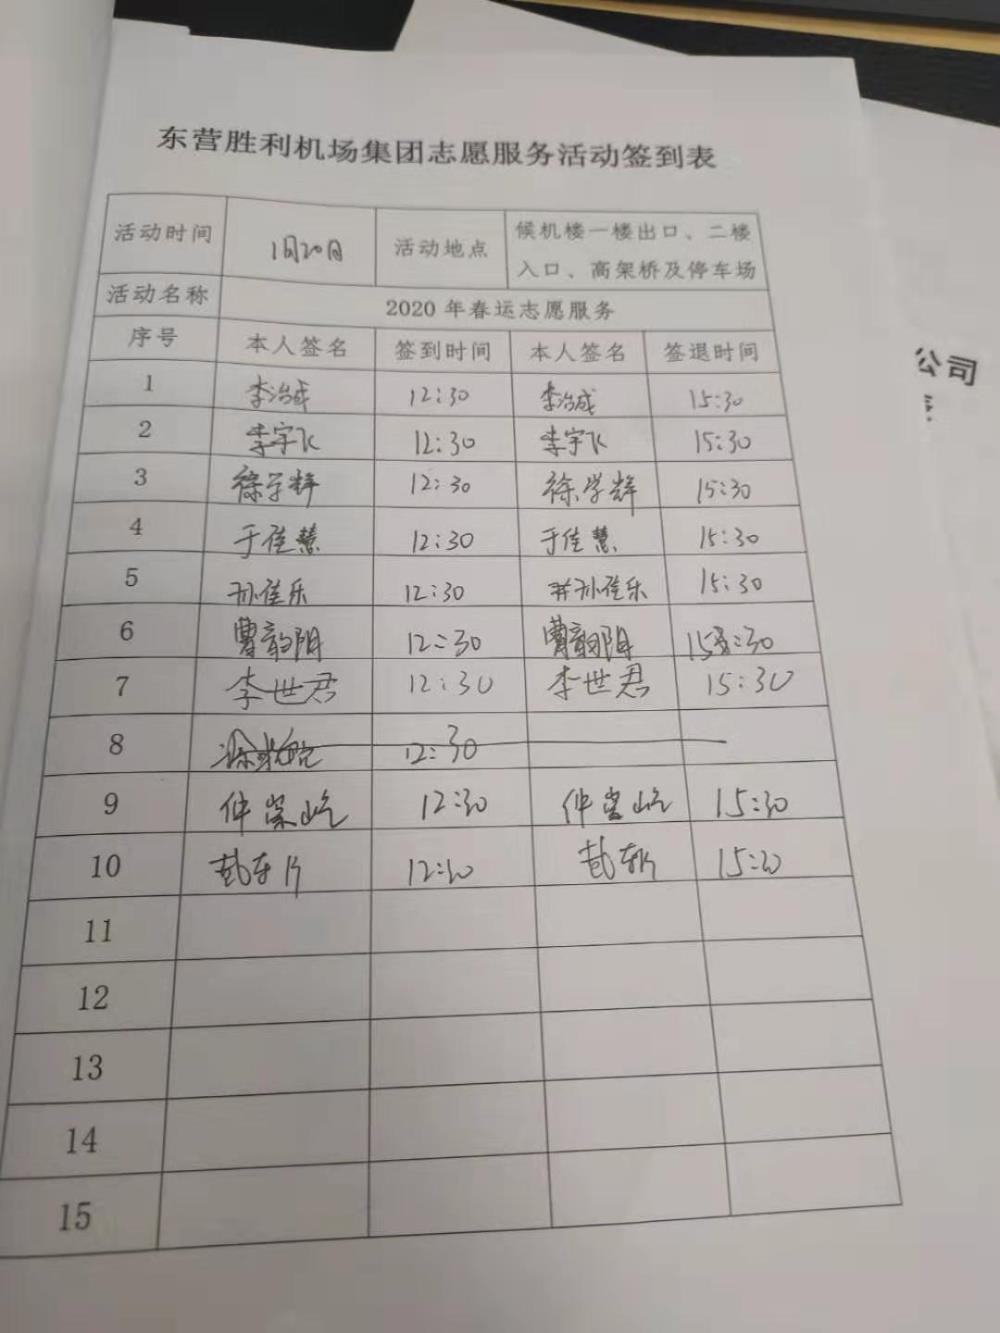 东营胜利机场集团志愿服务活动签到表
活动时间 1月20日 活动地点 候机楼一楼出口、二楼
入口、高架桥及停车场
活动名称 2020年春运志愿服务
序号 本人签名 签到时间 本人签名 签退时间
1 李治成 12:30 李治成 15:30
2 李宇飞 12:30 李宇飞 15:30
3 徐学辉 12:30 徐学辉 15:30
4 于佳慧 12:30 于佳慧 15:30
5 孙佳乐 12:30 孙佳乐 15:30
6 曹韵阳 12:30 曹韵阳 15:30
7 李世君 12:30 李世君 15:30
8 12:30
9 仲崇屹 12:30 仲崇屹 15:30
10 15:30
11
12
13
14
15
公司